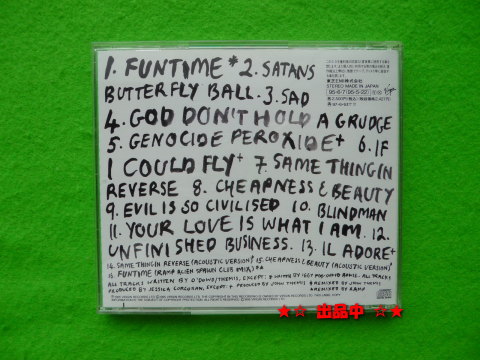 1. FUNTIME* 2. SATANS
BUTTERFLY BALL. 3. SAD
4. GOD DON'T HOLD A GRUDGE
5. GENOCIDE PEROXIDE+ 6. IF
I COULD FLY+ 7. SAME THING IN
REVERSE 8. CHEAPNESS & BEAUTY
9. EVIL IS SO CIVILISED 10. BLINDMAN
11. YOUR LOVE IS WHAT I AM. 12.
UNFINISHED BUSINESS. 13. IL ADORE+
14. SAME THING IN REVERSE (ACOUSTIC VERSION) 15. CHEAPNESS & BEAUTY (ACOUSTIC VERSION)
16 FUNTIME (RAMP ALIEN SPAWN CLUB MIX)
ALL TRACKS WRITTEN BY O'DOWD/THEMIS, EXCEPT: * WRITTEN BY IGGY POP/DAVID BOWIE. ALL TRACKS
PRODUCED BY JESSICA CORCORAN, EXCEPT: + PRODUCED BY JOHN THEMIS
REMIXED BY JOHN THEMIS
REMIXED BY RAMP
東芝EMI株式会社
STEREO MADE IN JAPAN
★☆ 出品中 ☆★